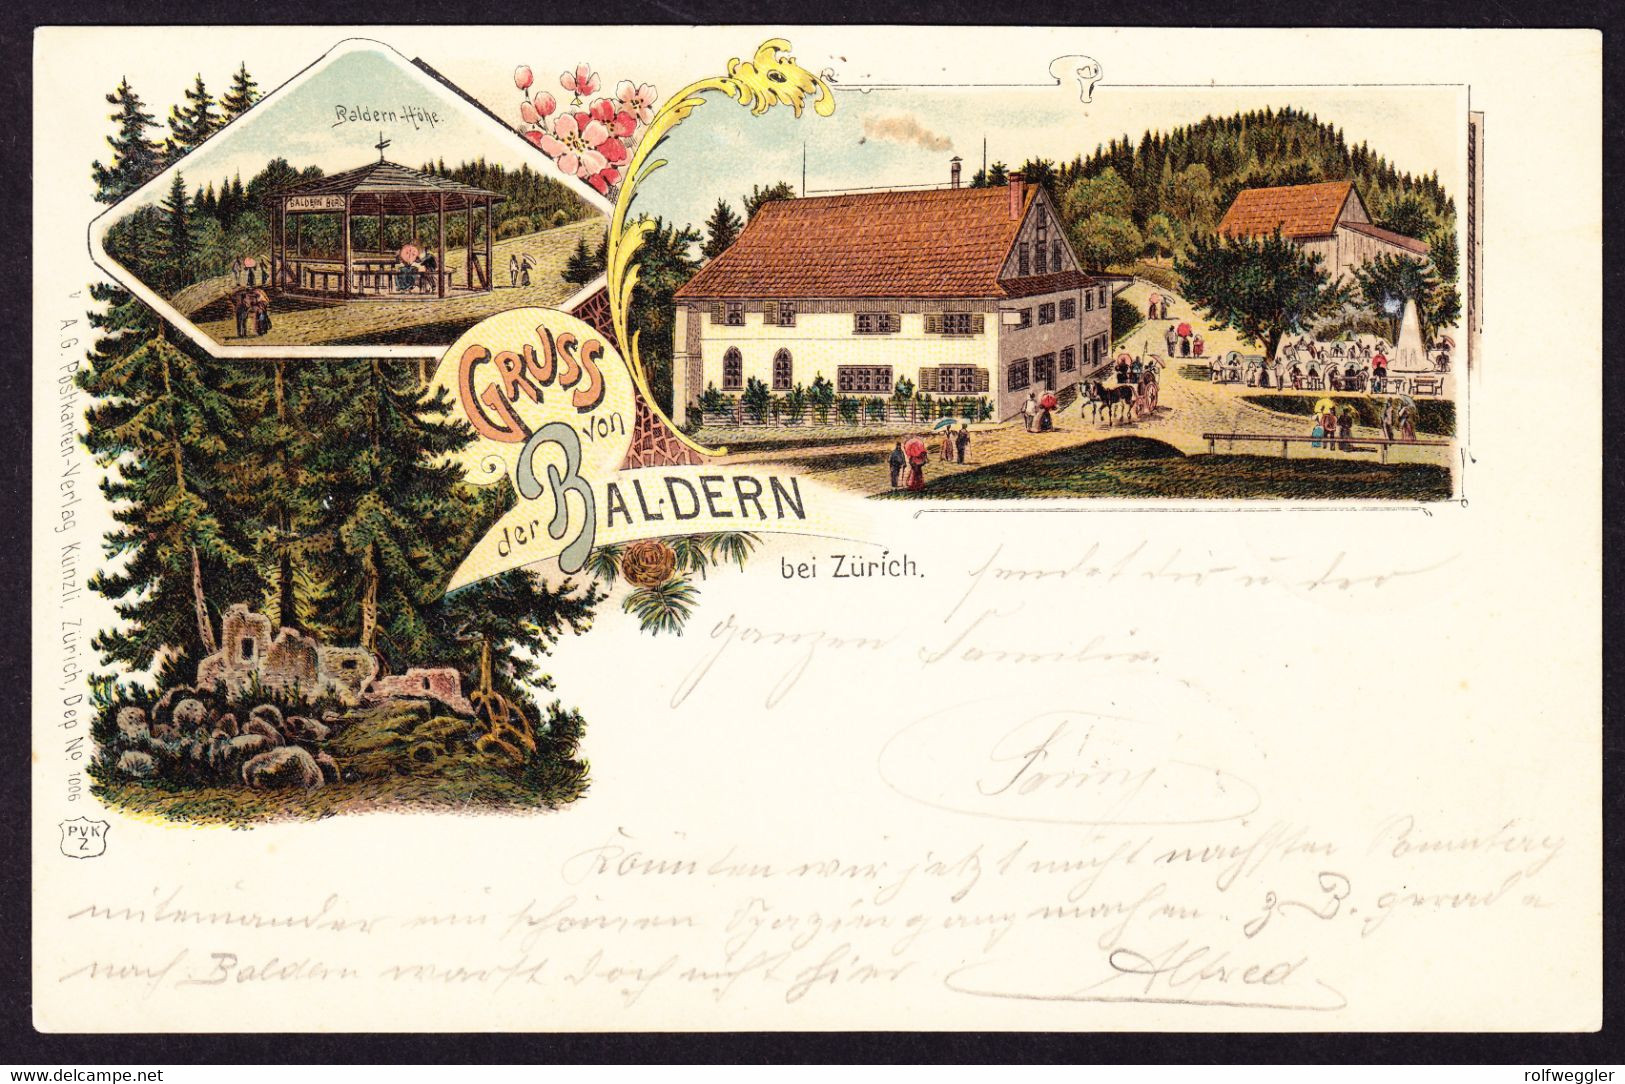 Baldern-Höhe.
BALDERN BURG
GRUSS
von
der BALDERN
bei Zürich.
sendet dir u der
ganzen Familie.
Fanny
Könnten wir jetzt nicht nächsten Sonntag
miteinander ein schönen Spaziergang machen. z. B. gerade
nach Baldern warst doch nicht hier
Alfred
v A. G. Postkarten-Verlag Künzli, Zürich, Dep No. 1006
PVK
Z
delcampe.net
rolfweggler